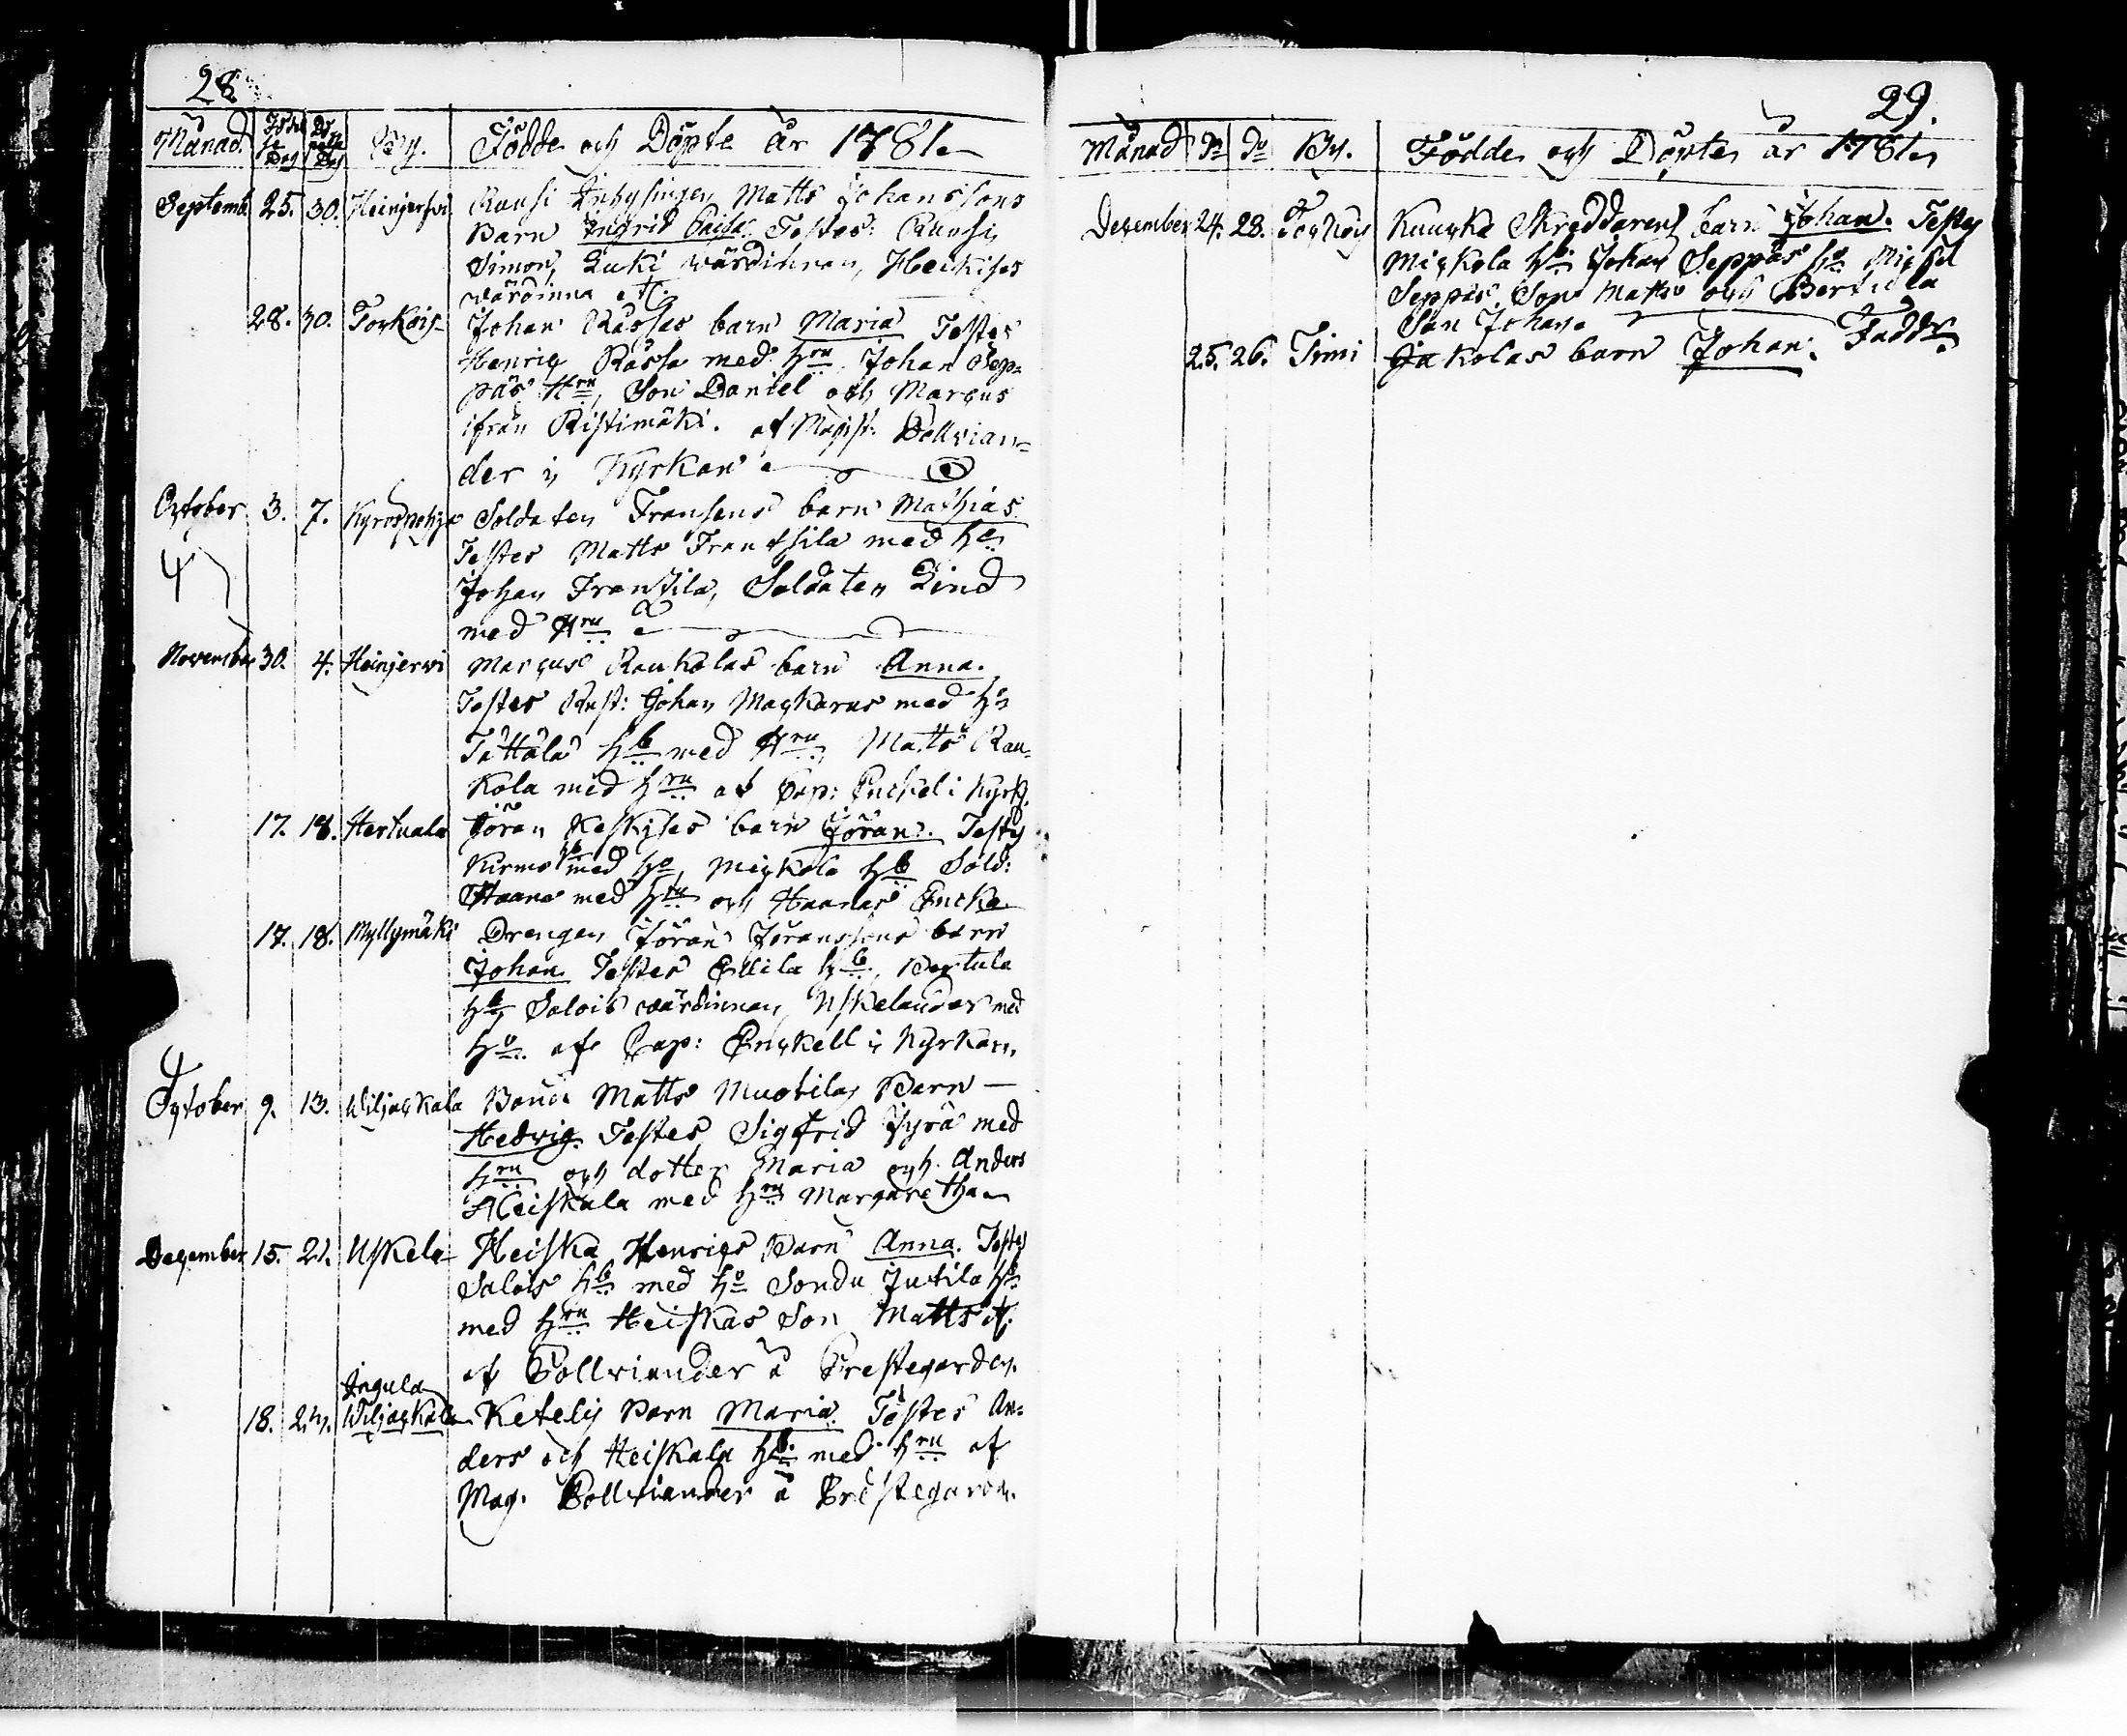 28.
Månad. Födelse Dag Döpelse Dag By. Födde och Döpte År 1781.
Septemb. 25. 30. Heinjerfvi Rausi Inhysingen Matts Johanssons
Barn Ingrid Caisa. Testes: Rausis
Simon, Luki värdinnan, Heikises
värdinna etc.
28. 30. Torkois Johan Rässes barn Maria Testes
Henric Rässa med hru Johan Sep-
päs Hru, Son Daniel och Marcus
ifrån Ristimäki. af Magist: Polvian-
der i Kyrkan
October 3. 7. Kyrospohja Soldaten Fransens barn Mathias
Testes Matts Frantsila med ho
Johan Frantzila, Soldaten Lind
med Hru
November 30. 4. Heinjerwi Marcus Raukolas barn Anna.
Testes Rust: Johan Mackarus med ho
Tättälä hb med Hru Matts Rau-
kola med hru af Cap: Enckel i Kyrk.
17. 18. Hertuala Jöran Keskises barn Jöran. Testes
Kirmo hb med ho, Mickola hb Sold:
Haana med hru och Haanas Encka
17. 18. Myllymäki Drengen Jöran Jöranssons barn
Johan Testes Ellila hb, Pertula
hb, Salois värdinnan, Uskelander med
ho af Cap: Enckell i Kyrkan.
October 9. 13. Wiljackala Bond Matts Muotilas Barn
Hedvig. Testes Sigfrid Jyrä med
hru och dotter Maria och Anders
Heiskala med hru Margaretha
December 15. 21. Uskela Heiska Henrics Barn Anna. Testes
Salois hb med ho Sondu Jutila hb
med hru Heiskas Son Matts etc.
af Pollviander å Prestegarden.
18. 24. Ingula Wiljackala Ketelis Barn Maria. Testes An-
ders och Heiskala hb med hru af
Mag. Pollviander å Prestegarden.
29.
Månad Do Do By. Födde och Döpte år 1781
December 24. 28. Torkois Kuucka Skreddarens barn Johan. Testes
Mickola hb Johan Seppäs ho Michel
Seppäs Son Matts och Bertila
Son Johan.
25. 26. Timi Jakolas barn Johan. Faddr